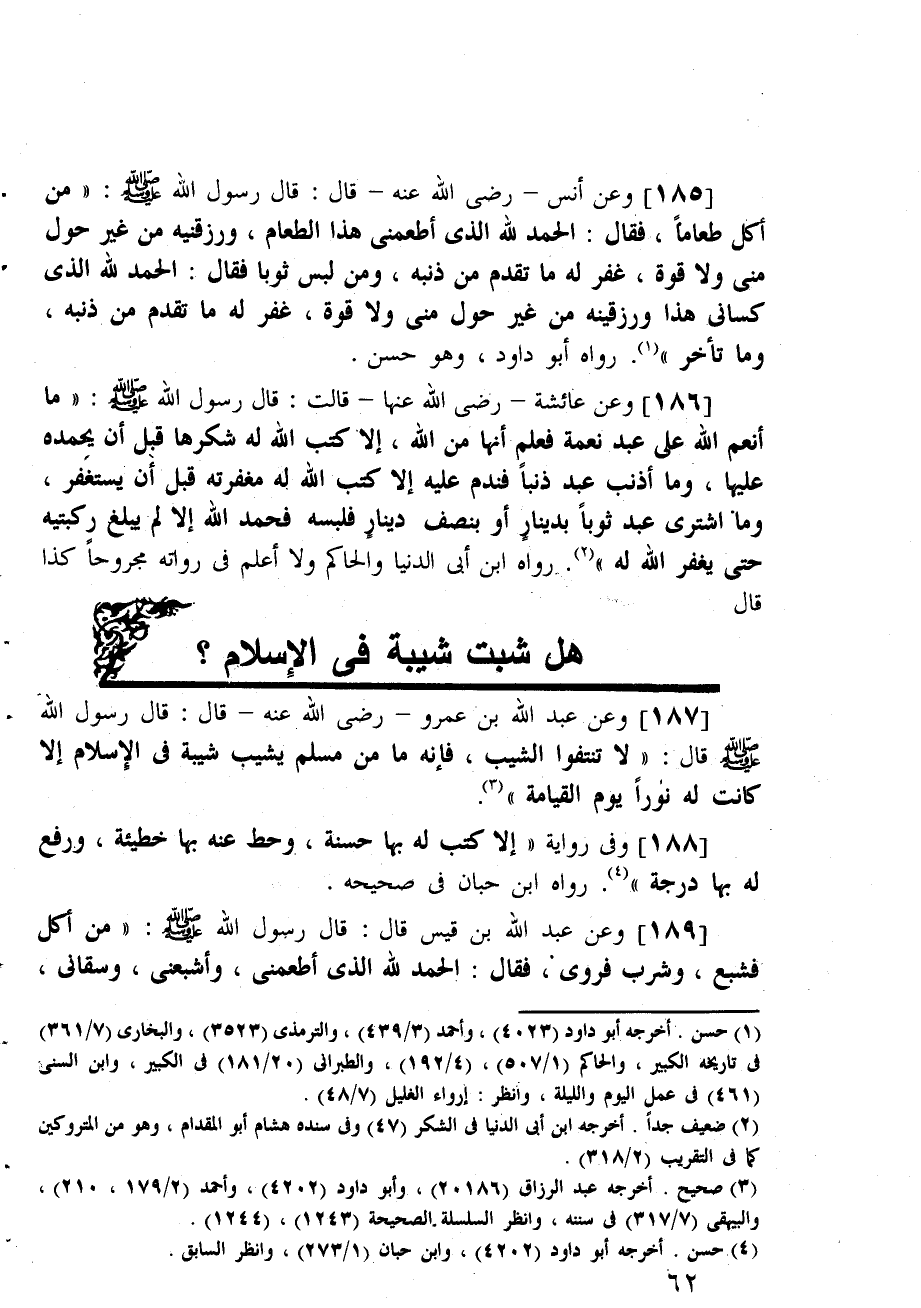 [١٨٥] وعن أنس – رضى الله عنه – قال : قال رسول الله ﷺ : « من
أكل طعاماً ، فقال : الحمد لله الذى أطعمنى هذا الطعام ، ورزقنيه من غير حول
منى ولا قوة ، غفر له ما تقدم من ذنبه ، ومن لبس ثوبا فقال : الحمد لله الذى
كسانى هذا ورزقينه من غير حول منى ولا قوة ، غفر له ما تقدم من ذنبه ،
وما تأخر »(١). رواه أبو داود ، وهو حسن .
[١٨٦] وعن عائشة – رضى الله عنها – قالت : قال رسول الله ﷺ : « ما
أنعم الله على عبد نعمة فعلم أنها من الله ، إلا كتب الله له شكرها قبل أن يحمده
عليها ، وما أذنب عبد ذنباً فندم عليه إلا كتب الله له مغفرته قبل أن يستغفر ،
وما اشترى عبد ثوباً بدينارٍ أو بنصف دينارٍ فلبسه فحمد الله إلا لم يبلغ ركبتيه
حتى يغفر الله له »(٢). رواه ابن أبى الدنيا والحاكم ولا أعلم فى رواته مجروحاً كذا
قال
هل شبت شيبة فى الإسلام ؟
[١٨٧] وعن عبد الله بن عمرو – رضى الله عنه – قال : قال رسول الله
ﷺ قال : « لا تنتفوا الشيب ، فإنه ما من مسلم يشيب شيبة فى الإسلام إلا
كانت له نوراً يوم القيامة »(٣).
[١٨٨] وفى رواية « إلا كتب له بها حسنة ، وحط عنه بها خطيئة ، ورفع
له بها درجة »(٤). رواه ابن حبان فى صحيحه .
[١٨٩] وعن عبد الله بن قيس قال : قال رسول الله ﷺ : « من أكل
فشبع ، وشرب فروى ، فقال : الحمد لله الذى أطعمنى ، وأشبعنى ، وسقانى ،
(١) حسن . أخرجه أبو داود (٤٠٢٣) ، وأحمد (٤٣٩/٣) ، والترمذى (٣٥٢٣) ، والبخارى (٣٦١/٧)
فى تاريخه الكبير ، والحاكم (٥٠٧/١) ، (١٩٢/٤) ، والطبرانى (١٨١/٢٠) فى الكبير ، وابن السنى
(٤٦١) فى عمل اليوم والليلة ، وانظر : إرواء الغليل (٤٨/٧) .
(٢) ضعيف جداً . أخرجه ابن أبى الدنيا فى الشكر (٤٧) وفى سنده هشام أبو المقدام ، وهو من المتروكين
كما فى التقريب (٣١٨/٢) .
(٣) صحيح . أخرجه عبد الرزاق (٢٠١٨٦) ، وأبو داود (٤٢٠٢) ، وأحمد (١٧٩/٢ ، ٢١٠) ،
والبيهقى (٣١٧/٧) فى سننه ، وانظر السلسلة الصحيحة (١٢٤٣) ، (١٢٤٤) .
(٤) حسن . أخرجه أبو داود (٤٢٠٢) ، وابن حبان (٢٧٣/١) ، وانظر السابق .
٦٢